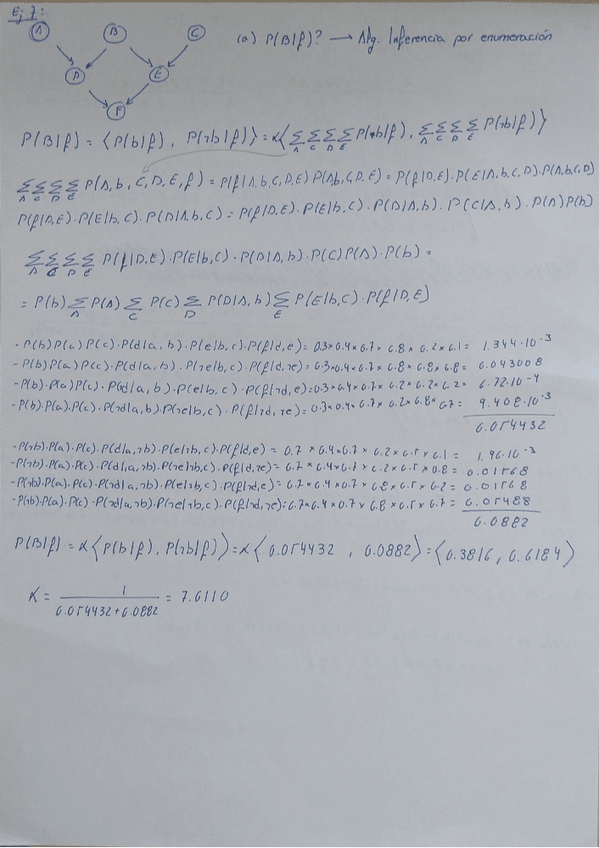 Ej 7:
A B C
(a) P(B|f)? → Alg. Inferencia por enumeración
D E
F
P(B|f) = ⟨P(b|f), P(¬b|f)⟩ = α⟨ΣA ΣC ΣD ΣE P(b|f), ΣA ΣC ΣD ΣE P(¬b|f)⟩
ΣA ΣC ΣD ΣE P(A,b,C,D,E,f) = P(f|A,b,C,D,E) P(A,b,C,D,E) = P(f|D,E)·P(E|A,b,C,D)·P(A,b,C,D)
P(f|D,E)·P(E|b,C)·P(D|A,b,C) = P(f|D,E)·P(E|b,C)·P(D|A,b)·P(C|A,b)·P(A)P(b)
ΣA ΣC ΣD ΣE P(f|D,E)·P(E|b,C)·P(D|A,b)·P(C)P(A)·P(b) =
= P(b) ΣA P(A) ΣC P(C) ΣD P(D|A,b) ΣE P(E|b,C)·P(f|D,E)
-P(b)P(a)P(c)·P(d|a,b)·P(e|b,c)·P(f|d,e) = 0.3×0.4×0.7×0.8×0.2×0.1 = 1.344·10⁻³
-P(b)P(a)P(c)·P(d|a,b)·P(¬e|b,c)·P(f|d,¬e) = 0.3×0.4×0.7×0.8×0.8×0.8 = 0.043008
-P(b)·P(a)P(c)·P(¬d|a,b)·P(e|b,c)·P(f|¬d,e) = 0.3×0.4×0.7×0.2×0.2×0.2 = 6.72·10⁻⁴
-P(b)·P(a)·P(c)·P(¬d|a,b)·P(¬e|b,c)·P(f|¬d,¬e) = 0.3×0.4×0.7×0.2×0.8×0.7 = 9.408·10⁻³
0.054432
-P(¬b)·P(a)·P(c)·P(d|a,¬b)·P(e|¬b,c)·P(f|d,e) = 0.7×0.4×0.7×0.2×0.5×0.1 = 1.96·10⁻³
-P(¬b)·P(a)·P(c)·P(d|a,¬b)·P(¬e|¬b,c)·P(f|d,¬e) = 0.7×0.4×0.7×0.2×0.5×0.8 = 0.01568
-P(¬b)·P(a)·P(c)·P(¬d|a,¬b)·P(e|¬b,c)·P(f|¬d,e) = 0.7×0.4×0.7×0.8×0.5×0.2 = 0.01568
-P(¬b)·P(a)·P(c)·P(¬d|a,¬b)·P(¬e|¬b,c)·P(f|¬d,¬e) = 0.7×0.4×0.7×0.8×0.5×0.7 = 0.05488
0.0882
P(B|f) = α⟨P(b|f), P(¬b|f)⟩ = α⟨0.054432, 0.0882⟩ = ⟨0.3816, 0.6184⟩
α = 1 / (0.054432+0.0882) = 7.0110